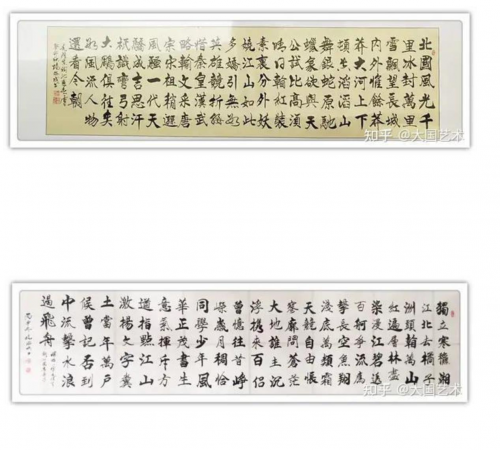 北國風光千
里冰封萬里
雪飄望長城
内外惟餘莽
莽大河上下
頓失滔滔山
舞銀蛇原馳
蠟象欲與天
公試比高須
晴日看紅裝
素裹分外妖
嬈江山如此
多嬌引無數
英雄競折腰
惜秦皇漢武
略輸文采唐
宗宋祖稍遜
風騷一代天
驕成吉思汗
祇識彎弓射
大鵰俱往矣
數風流人物
還看今朝
知乎 @大国艺术
獨立寒秋湘
江北去橘子
洲頭看萬山
紅遍層林盡
染漫江碧透
百舸爭流鷹
擊長空魚翔
淺底萬類霜
天競自由悵
寥廓問蒼茫
大地誰主沉
浮攜來百侣
曾憶往昔崢
嶸歲月稠恰
同學少年風
華正茂書生
意氣揮斥方
遒指點江山
激揚文字糞
土當年萬戶
侯曾記否到
中流擊水浪
遏飛舟
知乎 @大国艺术